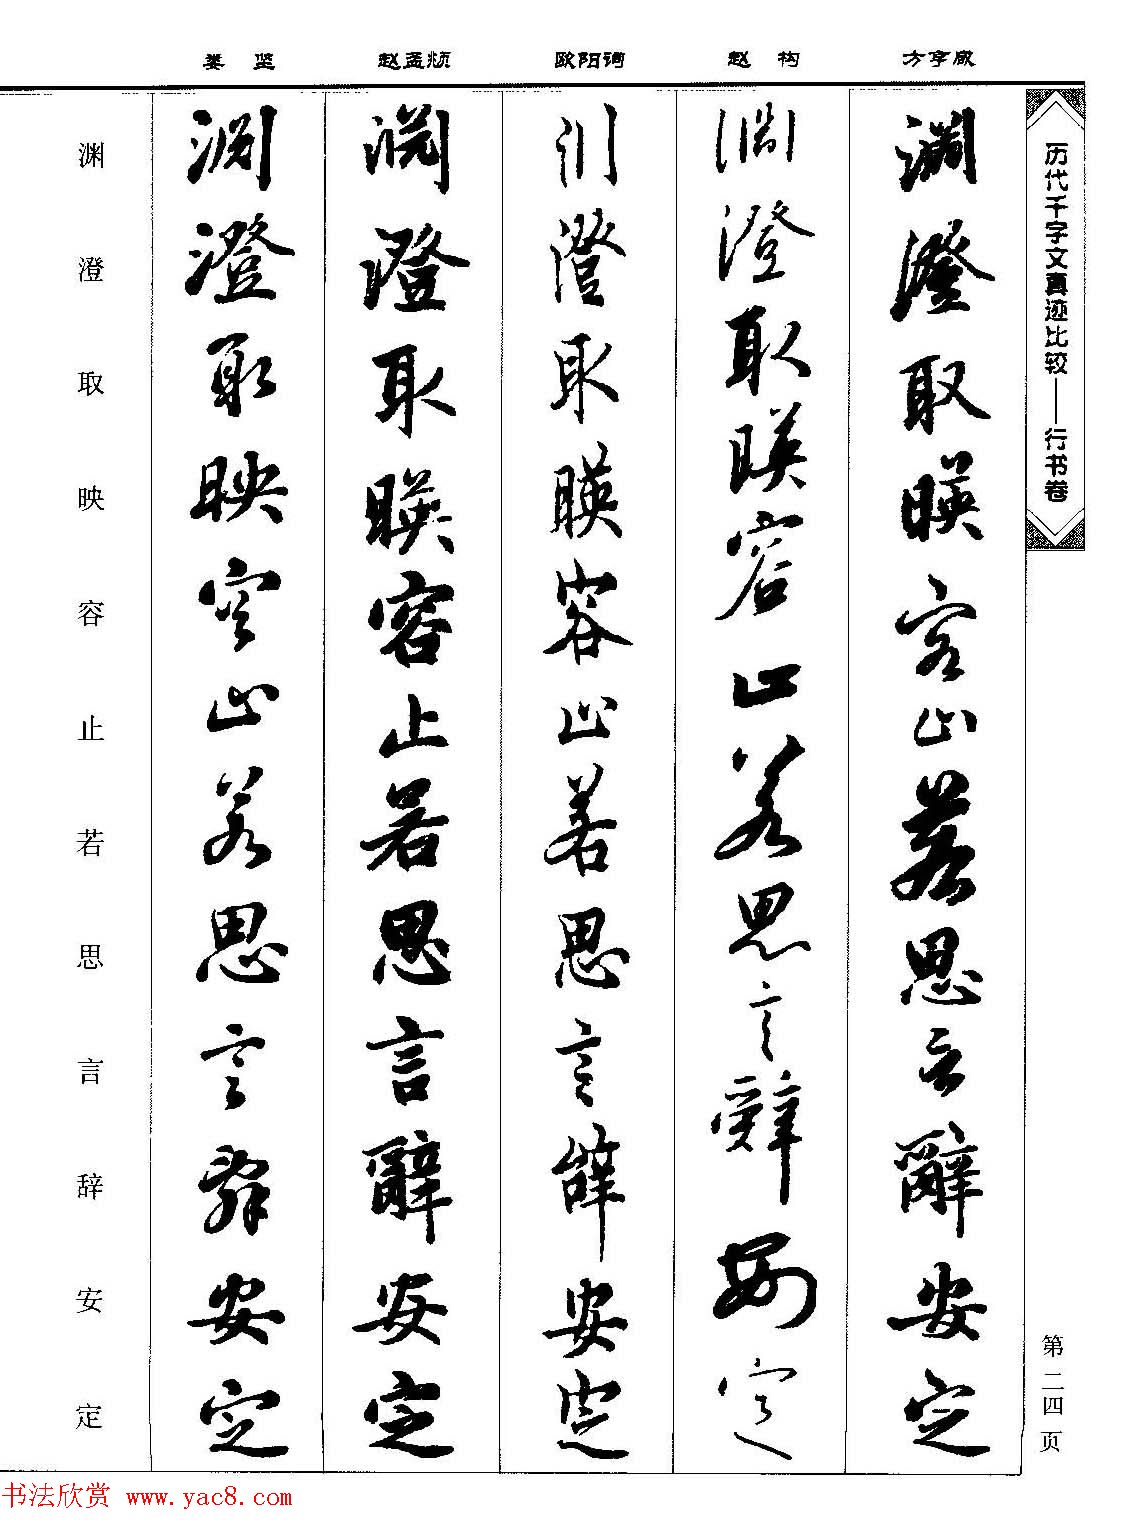 历代千字文真迹比较——行书卷
第二四页
方亨咸
淵澄取暎容止若思言辭安定
赵构
淵澄取暎容止若思言辭安定
欧阳询
渊澄取暎容止若思言辭安定
赵孟頫
淵澄取暎容止若思言辭安定
娄坚
淵澄取映容止若思言辭安定
渊澄取映容止若思言辞安定
书法欣赏 www.yac8.com